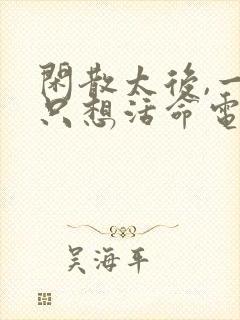 閑散太後,一
只想活命電
吴海平